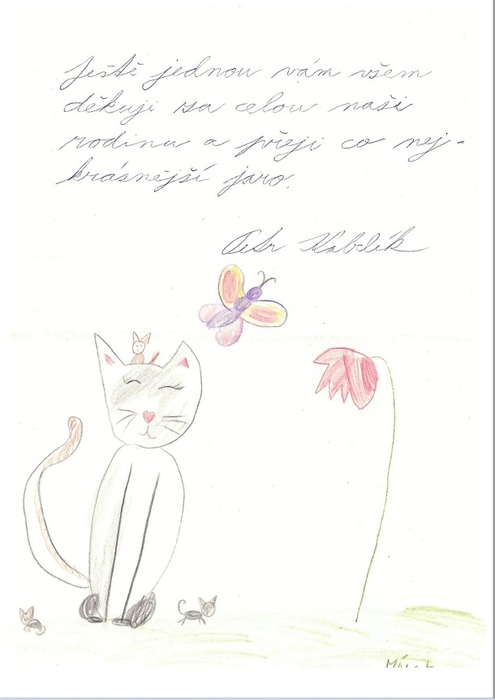 Ještě jednou vám všem
děkuji za celou naši
rodinu a přeji co nej-
krásnější jaro.
Petr Kabelík